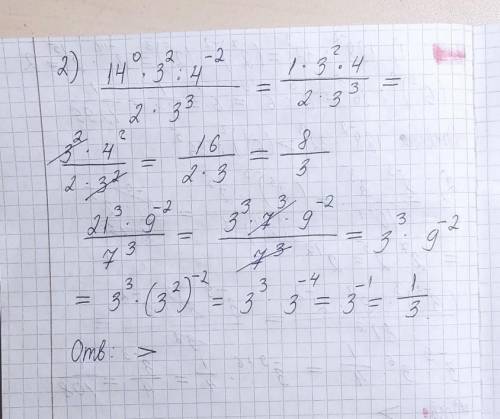 2) (14⁰ · 3² · 4⁻²)/(2 · 3³) = (1 · 3² · 4)/(2 · 3³) =
(3² · 4²)/(2 · 3²) = 16/(2 · 3) = 8/3
(21³ · 9⁻²)/7³ = (3³ · 7³ · 9⁻²)/7³ = 3³ · 9⁻²
= 3³ · (3²)⁻² = 3³ · 3⁻⁴ = 3⁻¹ = 1/3
Отв: >